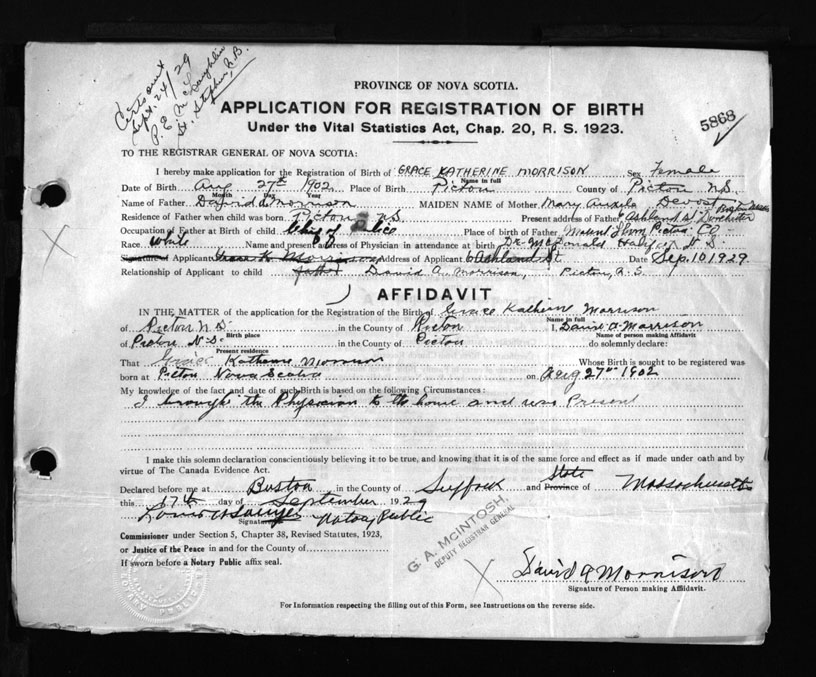 Certs out
Sept. 24/29
P. E. McLaughlin
St. Stephen, N.B.
PROVINCE OF NOVA SCOTIA.
APPLICATION FOR REGISTRATION OF BIRTH
Under the Vital Statistics Act, Chap. 20, R. S. 1923.
5868
TO THE REGISTRAR GENERAL OF NOVA SCOTIA:
I hereby make application for the Registration of Birth of GRACE KATHERINE MORRISON Sex Female
Name in full
Date of Birth Aug 27th 1902 Place of Birth Pictou County of Pictou N.S.
Month Day Year
Name of Father David A Morrison MAIDEN NAME of Mother Mary Angela
Residence of Father when child was born Pictou N.S Present address of Father Ashland St Dorchester
Occupation of Father at Birth of child Chief of Police Place of birth of Father Mount Thom Pictou Co
Race White Name and present address of Physician in attendance at birth Dr. McDonald Halifax N.S.
Signature of Applicant Grace K Morrison Address of Applicant Ashland St. Date Sep. 10 1929
Relationship of Applicant to child father David A. Morrison, Pictou, N.S.
AFFIDAVIT
IN THE MATTER of the application for the Registration of the Birth of Grace Katherine Morrison
Name in full
of Pictou N S in the County of Pictou I, David A Morrison
Birth place Name of person making Affidavit
of Pictou N.S. in the County of Pictou do solemnly declare:
Present residence
That Grace Katherine Morrison Whose Birth is sought to be registered was
born at Pictou Nova Scotia on Aug 27th 1902
My knowledge of the fact and date of such Birth is based on the following Circumstances:
I brough the Physician to the home and was Present
I make this solemn declaration conscientiously believing it to be true, and knowing that it is of the same force and effect as if made under oath and by
virtue of The Canada Evidence Act.
State
Declared before me at Boston in the County of Suffolk and Province of Massachusetts
this 17th day of September 1929
Louis Sawyer Notary Public
Signature
Commissioner under Section 5, Chapter 38, Revised Statutes, 1923,
or Justice of the Peace in and for the County of
If sworn before a Notary Public affix seal.
G. A. McINTOSH,
DEPUTY REGISTRAR GENERAL
David A Morrison
Signature of Person making Affidavit.
For Information respecting the filling out of this Form, see Instructions on the reverse side.